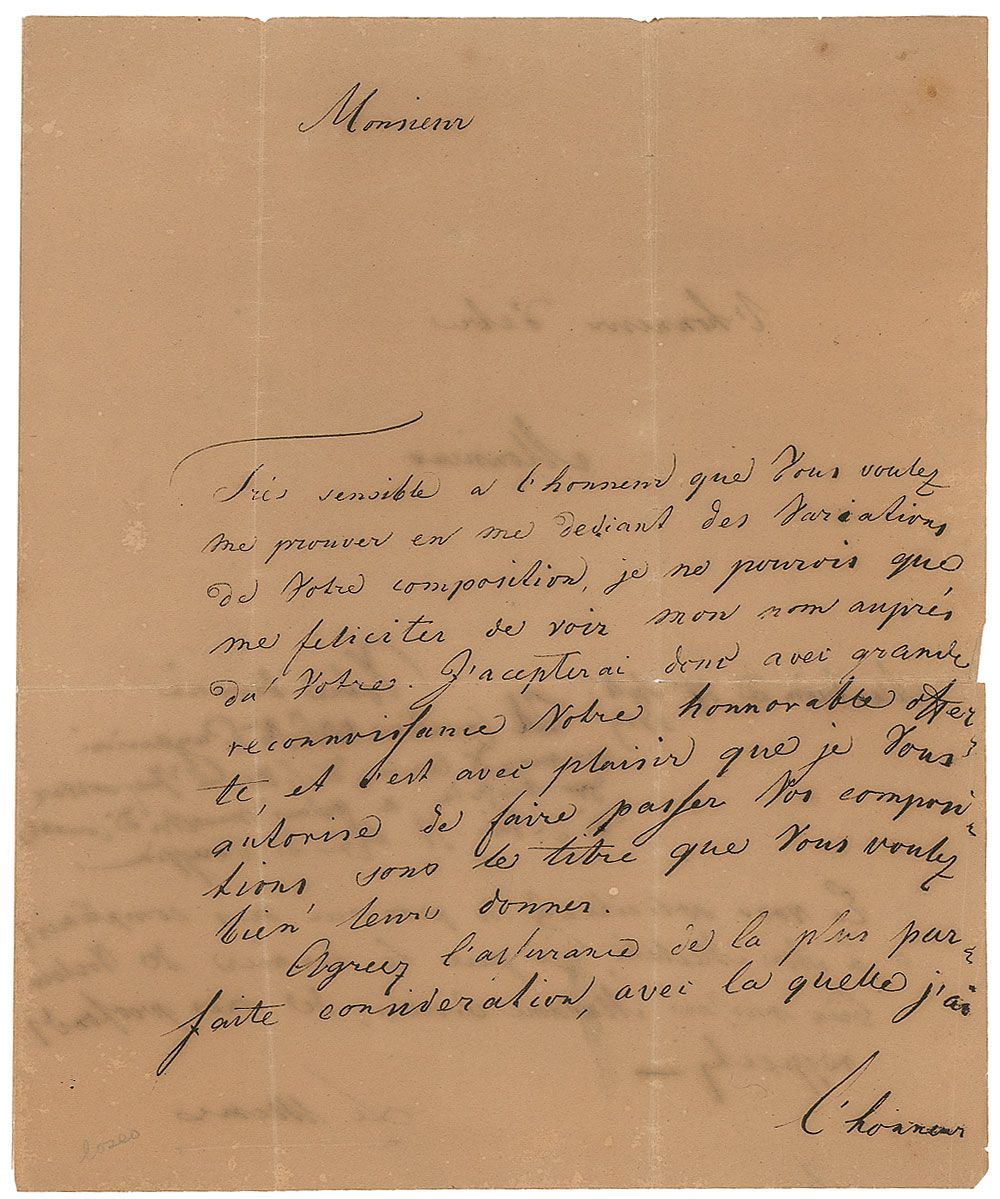 Monsieur
Trés sensible a l'honneur que Vous voulez
me prouver en me dediant des Variations
de Votre composition, je ne pourois que
me feliciter de voir mon nom auprés
du Votre. J'accepterai donc avec grande
reconnoissance Votre honnorable offer-
te, et c'est avec plaisir que je Vous
autorise de faire passer Vos composi-
tions sous le titre que Vous voulez
bien leur donner.
Agreez l'assurance de la plus par-
faite consideration, avec la quelle j'ai
l'honneur